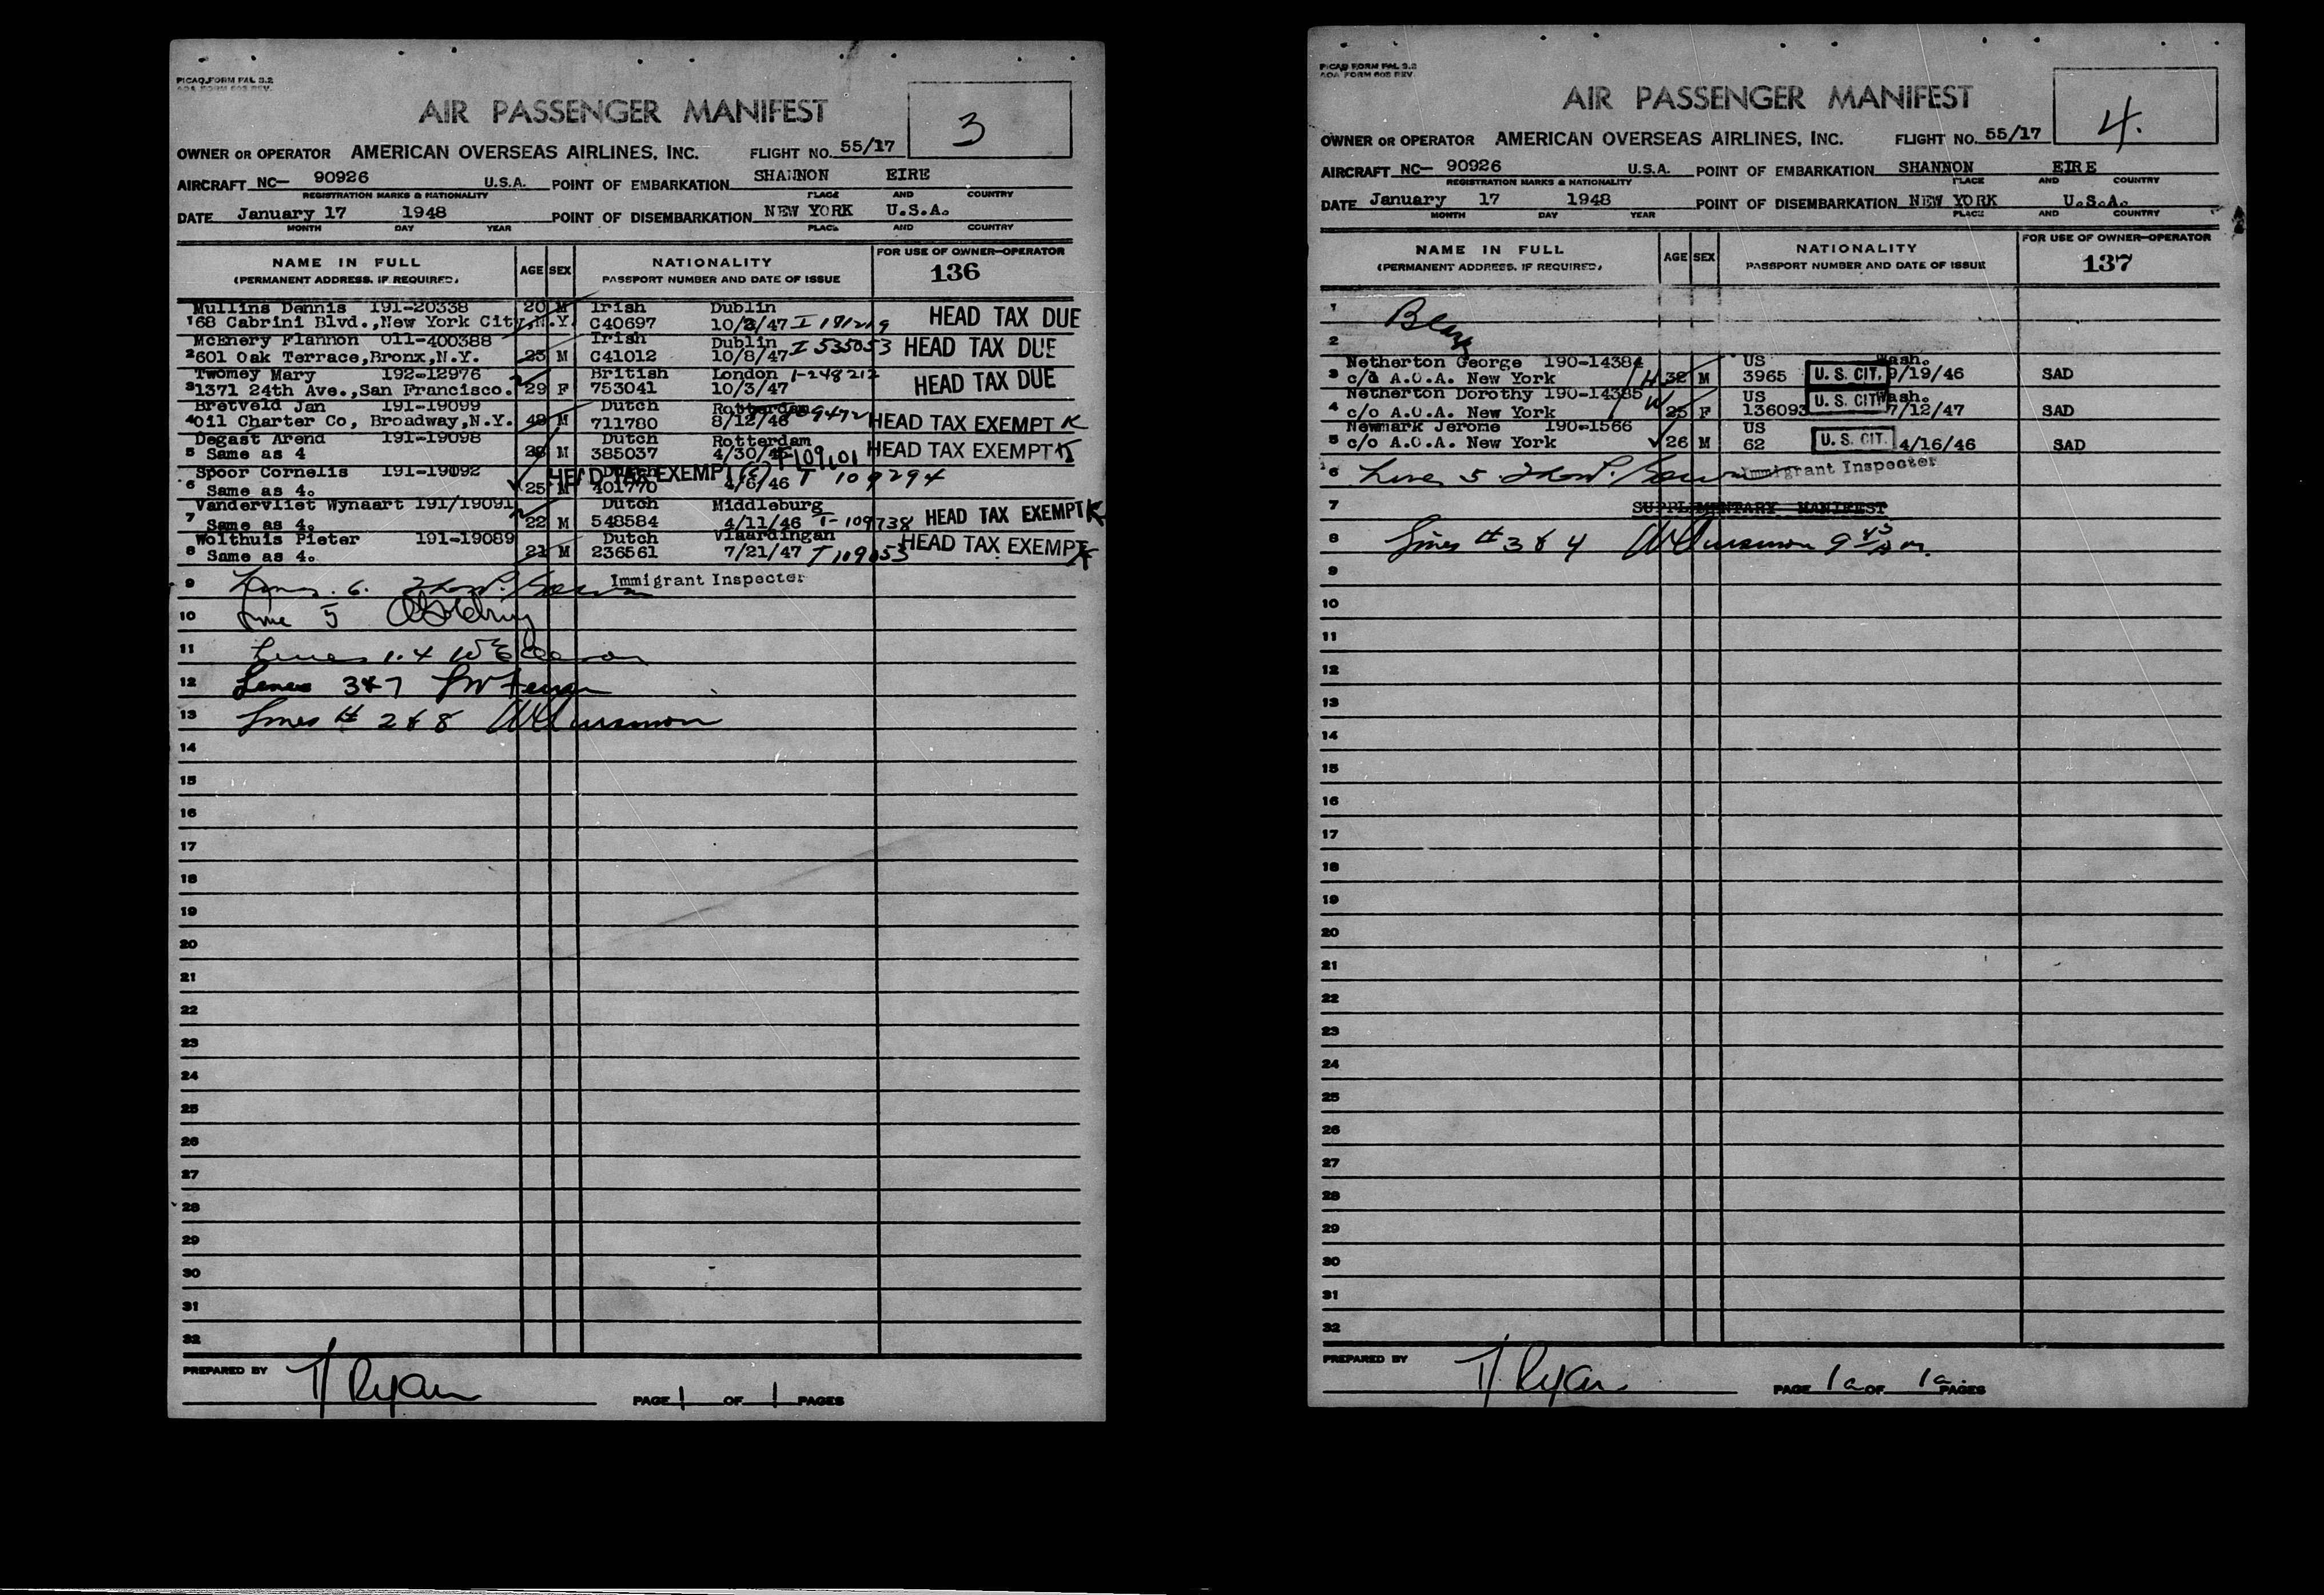 PICAO FORM PAL 3.2
AOA FORM 605 REV.
AIR PASSENGER MANIFEST
3
OWNER OR OPERATOR AMERICAN OVERSEAS AIRLINES, INC. FLIGHT NO. 55/17
AIRCRAFT NC— 90926 U.S.A. POINT OF EMBARKATION SHANNON EIRE
REGISTRATION MARKS & NATIONALITY PLACE AND COUNTRY
DATE January 17 1948 POINT OF DISEMBARKATION NEW YORK U.S.A.
MONTH DAY YEAR PLACE AND COUNTRY
NAME IN FULL AGE SEX NATIONALITY FOR USE OF OWNER-OPERATOR
(PERMANENT ADDRESS, IF REQUIRED) PASSPORT NUMBER AND DATE OF ISSUE 136
Mullins Dennis 191-20338 20 M Irish Dublin HEAD TAX DUE
1 68 Cabrini Blvd.,New York City,N.Y. C40697 10/2/47
McEnery Flannon 011-400388 Irish Dublin I 535053 HEAD TAX DUE
2 601 Oak Terrace,Bronx,N.Y. 23 M C41012 10/8/47
Twomey Mary 192-12976 British London I-248212 HEAD TAX DUE
3 1371 24th Ave.,San Francisco. 29 F 753041 10/3/47
Bretveld Jan 191-19099 Dutch Rotterdam
4 Oil Charter Co, Broadway,N.Y. 48 M 711780 8/12/46 HEAD TAX EXEMPT K
Degast Arend 191-19098 Dutch Rotterdam HEAD TAX EXEMPT K
5 Same as 4 M 385037 4/30/46 T109101
Spoor Cornelis 191-19092 Dutch HEAD TAX EXEMPT (K)
6 Same as 4. 25 M 401770 4/6/46 T 109294
Vandervliet Wynaart 191/19091 Dutch Middleburg HEAD TAX EXEMPT K
7 Same as 4. 22 M 548584 4/11/46 T-109738
Wolthuis Pieter 191-19089 Dutch Vlaardingan HEAD TAX EXEMPT K
8 Same as 4. 21 M 236561 7/21/47 T109053
9 Lines. 6. Immigrant Inspector
10 Line 5
11 Lines 1.4
12 Lines 3&7
13 Lines # 2 & 8
14
15
16
17
18
19
20
21
22
23
24
25
26
27
28
29
30
31
32
PREPARED BY T Ryan PAGE 1 OF 1 PAGES
PICAO FORM PAL 3.2
AOA FORM 605 REV.
AIR PASSENGER MANIFEST
4.
OWNER OR OPERATOR AMERICAN OVERSEAS AIRLINES, INC. FLIGHT NO. 55/17
AIRCRAFT NC— 90926 U.S.A. POINT OF EMBARKATION SHANNON EIRE
REGISTRATION MARKS & NATIONALITY PLACE AND COUNTRY
DATE January 17 1948 POINT OF DISEMBARKATION NEW YORK U.S.A.
MONTH DAY YEAR PLACE AND COUNTRY
NAME IN FULL AGE SEX NATIONALITY FOR USE OF OWNER-OPERATOR
(PERMANENT ADDRESS, IF REQUIRED) PASSPORT NUMBER AND DATE OF ISSUE 137
1
2
Netherton George 190-14384 US Wash.
3 c/o A.O.A. New York 32 M 3965 U. S. CIT. 9/19/46 SAD
Netherton Dorothy 190-14385 US Wash.
4 c/o A.O.A. New York 25 F 136093 U. S. CIT. 7/12/47 SAD
Newmark Jerome 190-1566 US
5 c/o A.O.A. New York 26 M 62 U. S. CIT. 4/16/46 SAD
6 Lines 5. Immigrant Inspector
7 SUPPLIMENTARY MANIFEST
8 Lines # 3 & 4
9
10
11
12
13
14
15
16
17
18
19
20
21
22
23
24
25
26
27
28
29
30
31
32
PREPARED BY T. Ryan PAGE 1a OF 1a PAGES